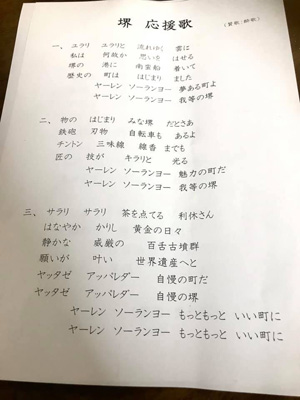 堺 応援歌
（賢歌:新歌）
一、ユラリ ユラリと 流れゆく 雲に
私は 何故か 思いを はせる
堺の 港に 南蛮船 着いて
歴史の 町は はじまり ました
ヤーレン ソーランヨー 夢ある町よ
ヤーレン ソーランヨー 我等の堺
二、物の はじまり みな堺 だとさあ
鉄砲 刃物 自転車も あるよ
チントン 三味線 線香 までも
匠の 技が キラリと 光る
ヤーレン ソーランヨー 魅力の町だ
ヤーレン ソーランヨー 我等の堺
三、サラリ サラリ 茶を点てる 利休さん
はなやか かりし 黄金の日々
静かな 威厳の 百舌古墳群
願いが 叶い 世界遺産へと
ヤッタゼ アッパレダー 自慢の町だ
ヤッタゼ アッパレダー 自慢の堺
ヤーレン ソーランヨー もっともっと いい町に
ヤーレン ソーランヨー もっともっと いい町に